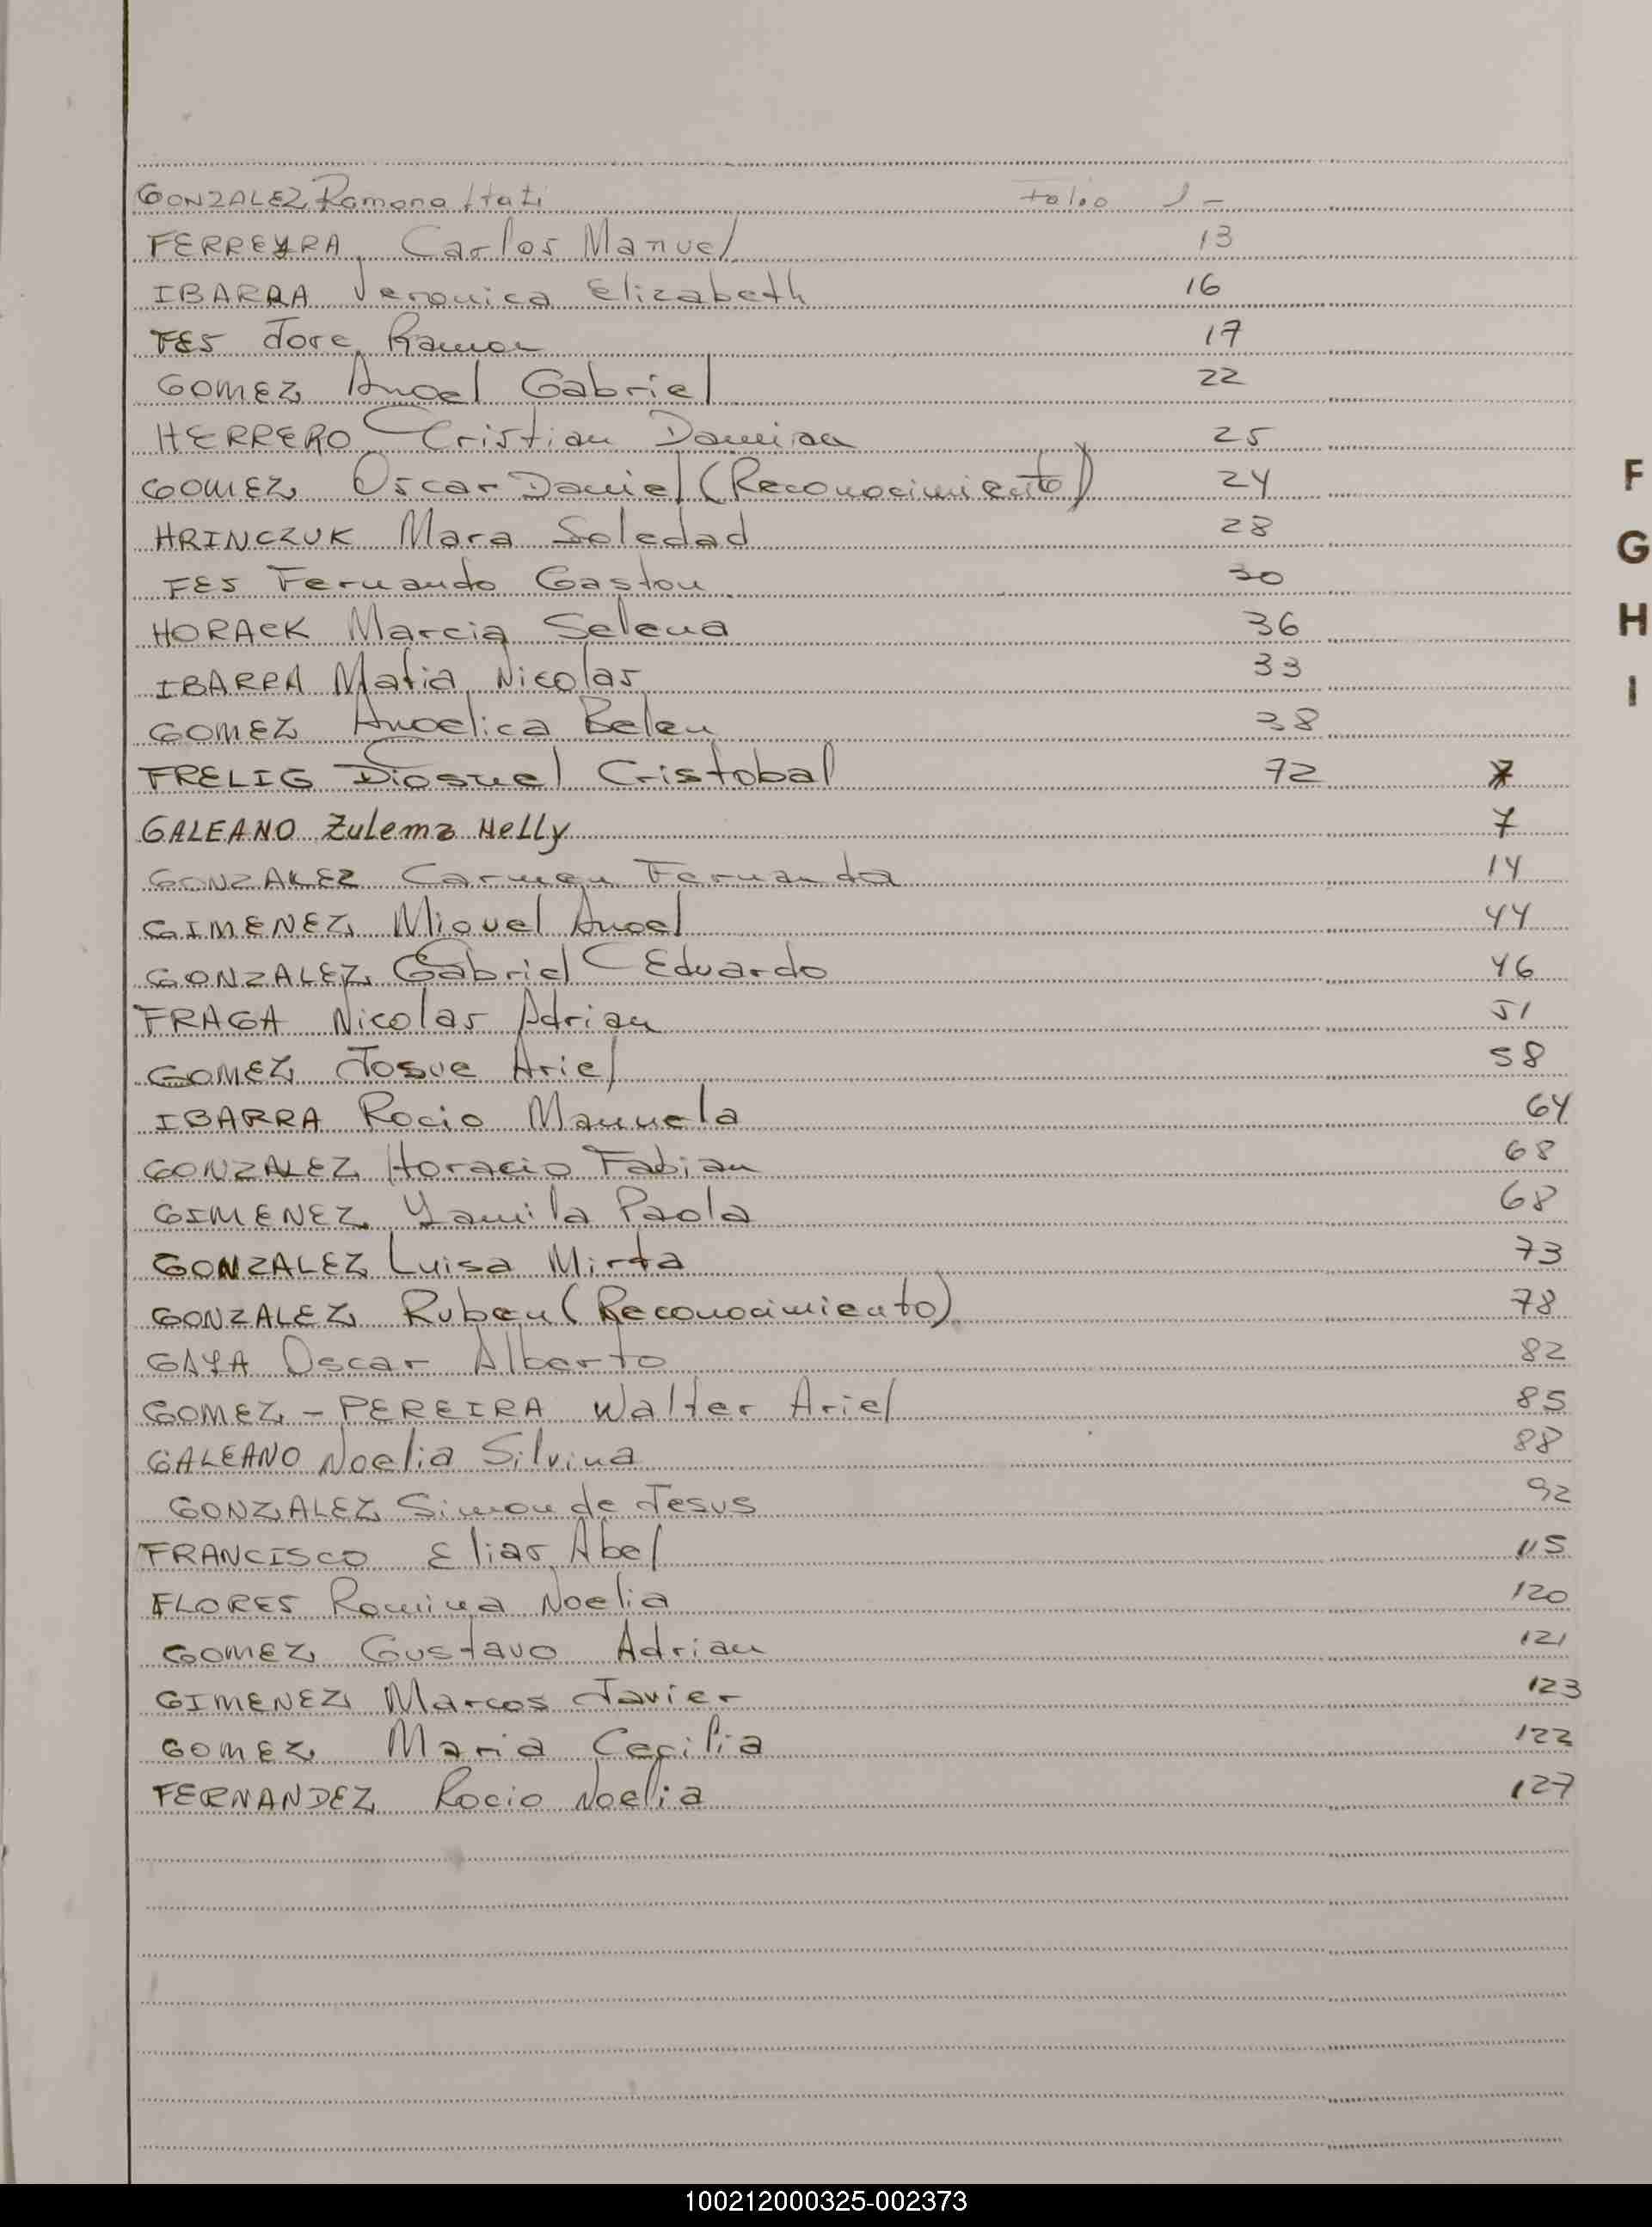 GONZALEZ Ramona Itati Folio 1 -
FERREYRA Carlos Manuel 13
IBARRA Veronica Elizabeth 16
FES Jore Ramon 17
GOMEZ Angel Gabriel 22
HERRERO Cristian Damian 25
GOMEZ Oscar Daniel (Reconocimiento) 24
HRINCZUK Mara Soledad 28
FES Fernando Gaston 30
HORACK Marcia Selena 36
IBARRA Matia Nicolas 33
GOMEZ Angelica Belen 38
FRELIG Diosnel Cristobal 72
GALEANO Zulema Nelly 7
GONZALEZ Carmen Fernanda 14
GIMENEZ Miguel Angel 44
GONZALEZ Gabriel Eduardo 46
FRAGA Nicolas Adrian 51
GOMEZ Josue Ariel 58
IBARRA Rocio Manuela 64
GONZALEZ Horacio Fabian 68
GIMENEZ Yamila Paola 68
GONZALEZ Luisa Mirta 73
GONZALEZ Ruben (Reconocimiento) 78
GAYA Oscar Alberto 82
GOMEZ - PEREIRA Walter Ariel 85
GALEANO Noelia Silvina 88
GONZALEZ Simon de Jesus 92
FRANCISCO Elias Abel 115
FLORES Romina Noelia 120
GOMEZ Gustavo Adrian 121
GIMENEZ Marcos Javier 123
GOMEZ Maria Cecilia 122
FERNANDEZ Rocio Noelia 127
F
G
H
I
100212000325-002373